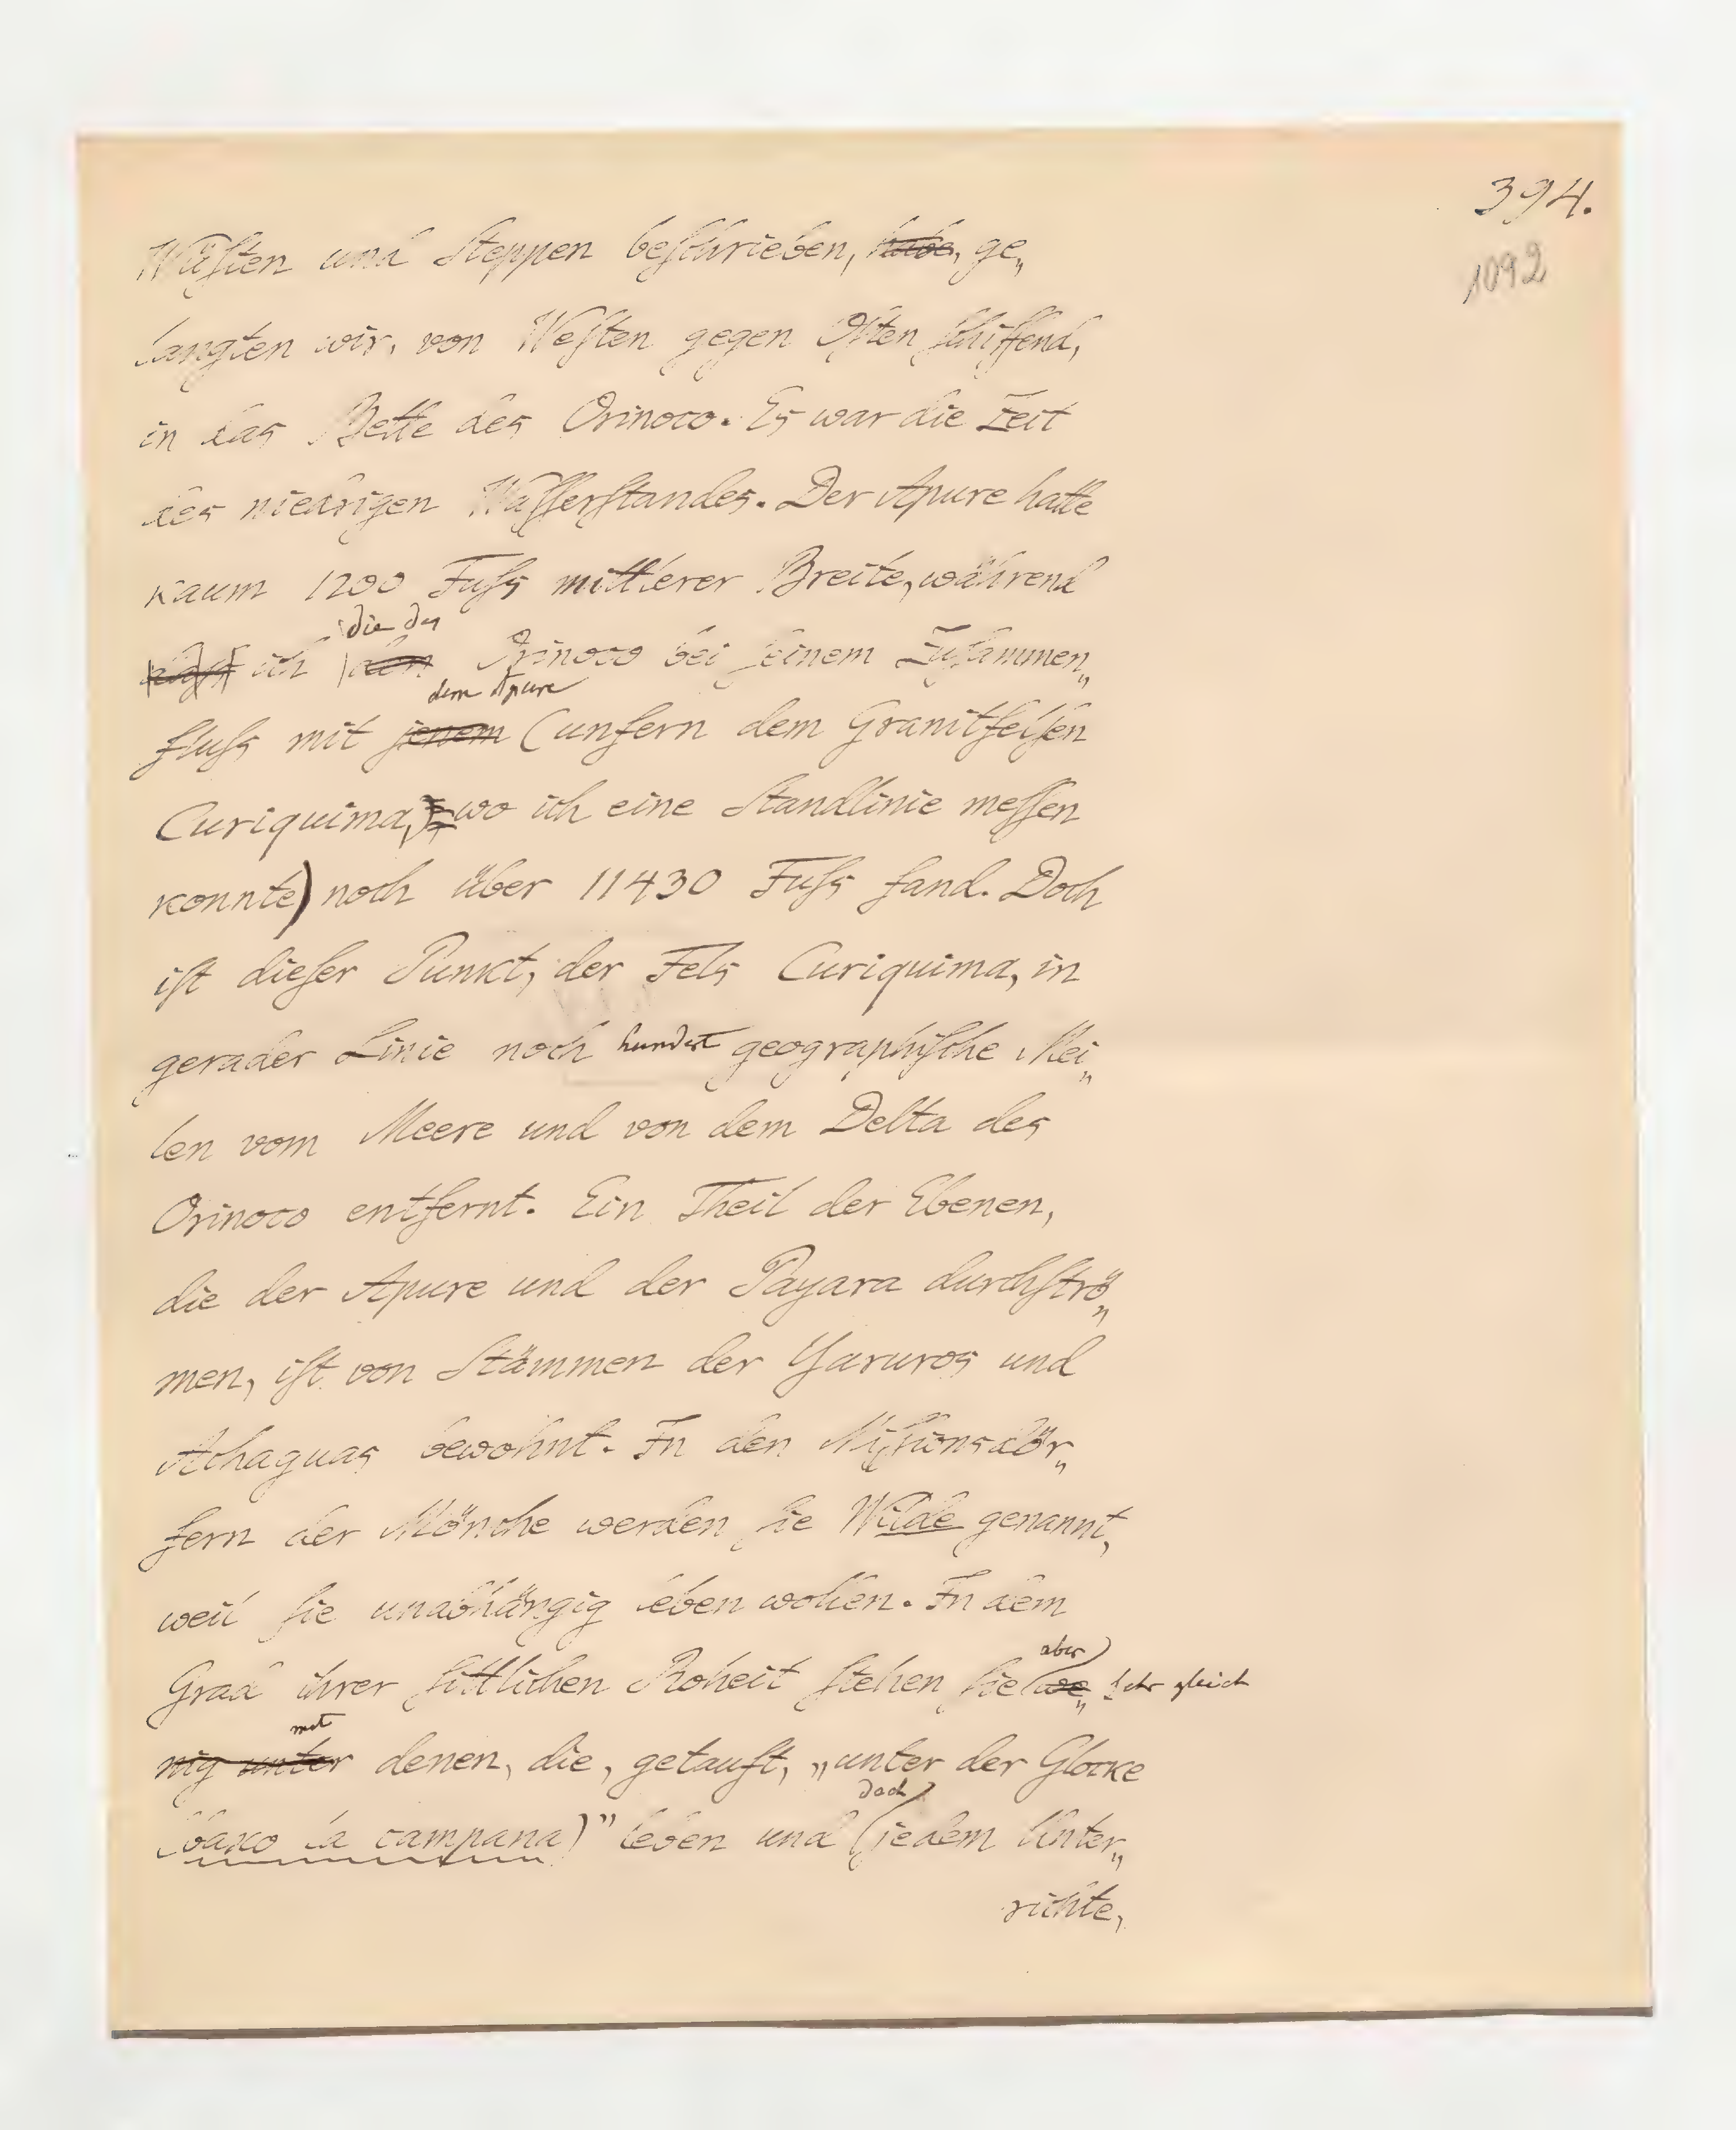 394.
1092
Wüſten und Steppen beſchrieben, habe, ge„
langten wir, von Weſten gegen Oſten ſchiffend,
in das Bette des Orinoco. Es war die Zeit
des niedrigen Waſſerſtandes. Der Apure hatte
kaum 1200 Fuſs mittlerer Breite, während
die des
ich den Orinoco bei ſeinem Zuſammen„
dem Apure
fluſs mit jenem (unfern dem Granitfelſen
Curiquima, wo ich eine Standlinie meſſen
konnte) noch über 11430 Fuſs fand. Doch
iſt dieſer Punkt, der Fels Curiquima, in
gerader Linie noch hundert geographiſche Mei„
len vom Meere und von dem Delta des
Orinoco entfernt. Ein Theil der Ebenen,
die der Apure und der Payara durchſtrö„
men, iſt von Stämmen der Yaruros und
Achaguas bewohnt. In den Miſſionsdör„
fern der Mönche werden ſie Wilde genannt,
weil ſie unabhängig leben wollen. In dem
aber
Grad ihrer ſittlichen Roheit ſtehen ſie we„ ſehr gleich
mit
nig unter denen, die, getauft, „unter der Glocke
doch
(baxo la campana)” leben und jedem Unter„
richte,